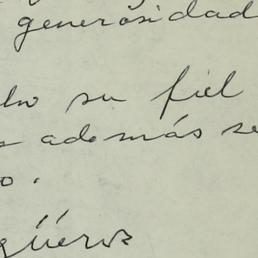 generosidad
su fiel
además se
o.
güeros